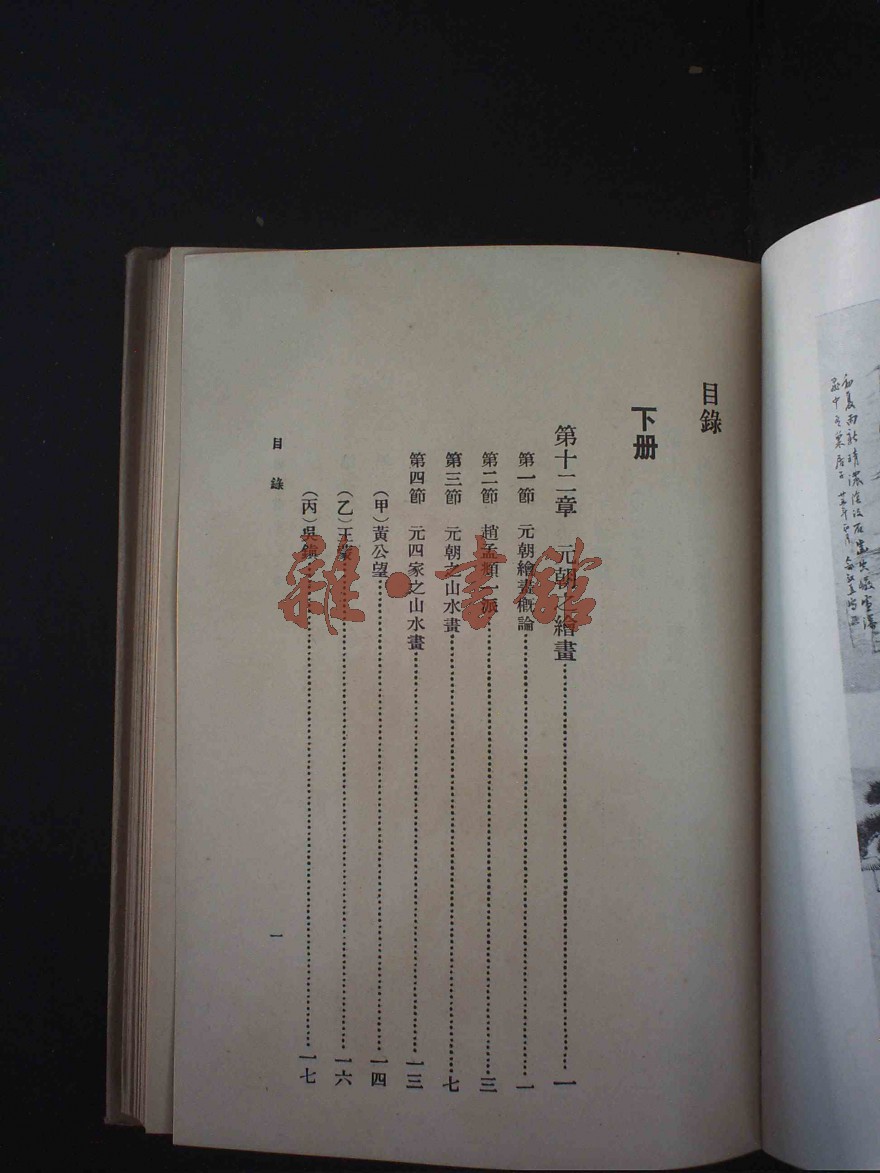 目錄
下册
第十二章 元朝之繪畫……一
第一節 元朝繪畫概論……一
第二節 趙孟頫一派……三
第三節 元朝之山水畫……七
第四節 元四家之山水畫……一三
(甲)黃公望……一四
(乙)王蒙……一六
(丙)吳鎮……一七
目錄
一
雜·書館